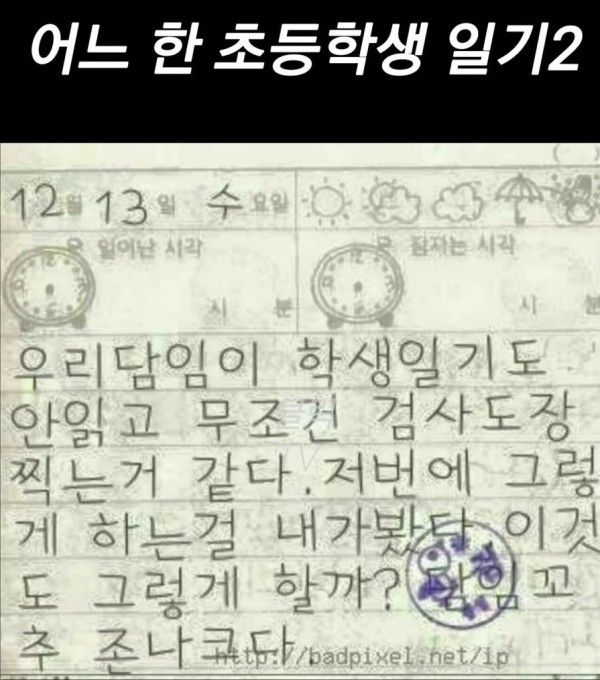 어느 한 초등학생 일기2
12월 13일 수요일
일어난 시각 잠자는 시각
시 분 시 분
우리담임이 학생일기도
안읽고 무조건 검사도장
찍는거 같다.저번에 그렇
게 하는걸 내가봤다 이것
도 그렇게 할까? 담임 꼬
추 존나크다.
http://badpixel.net/ip